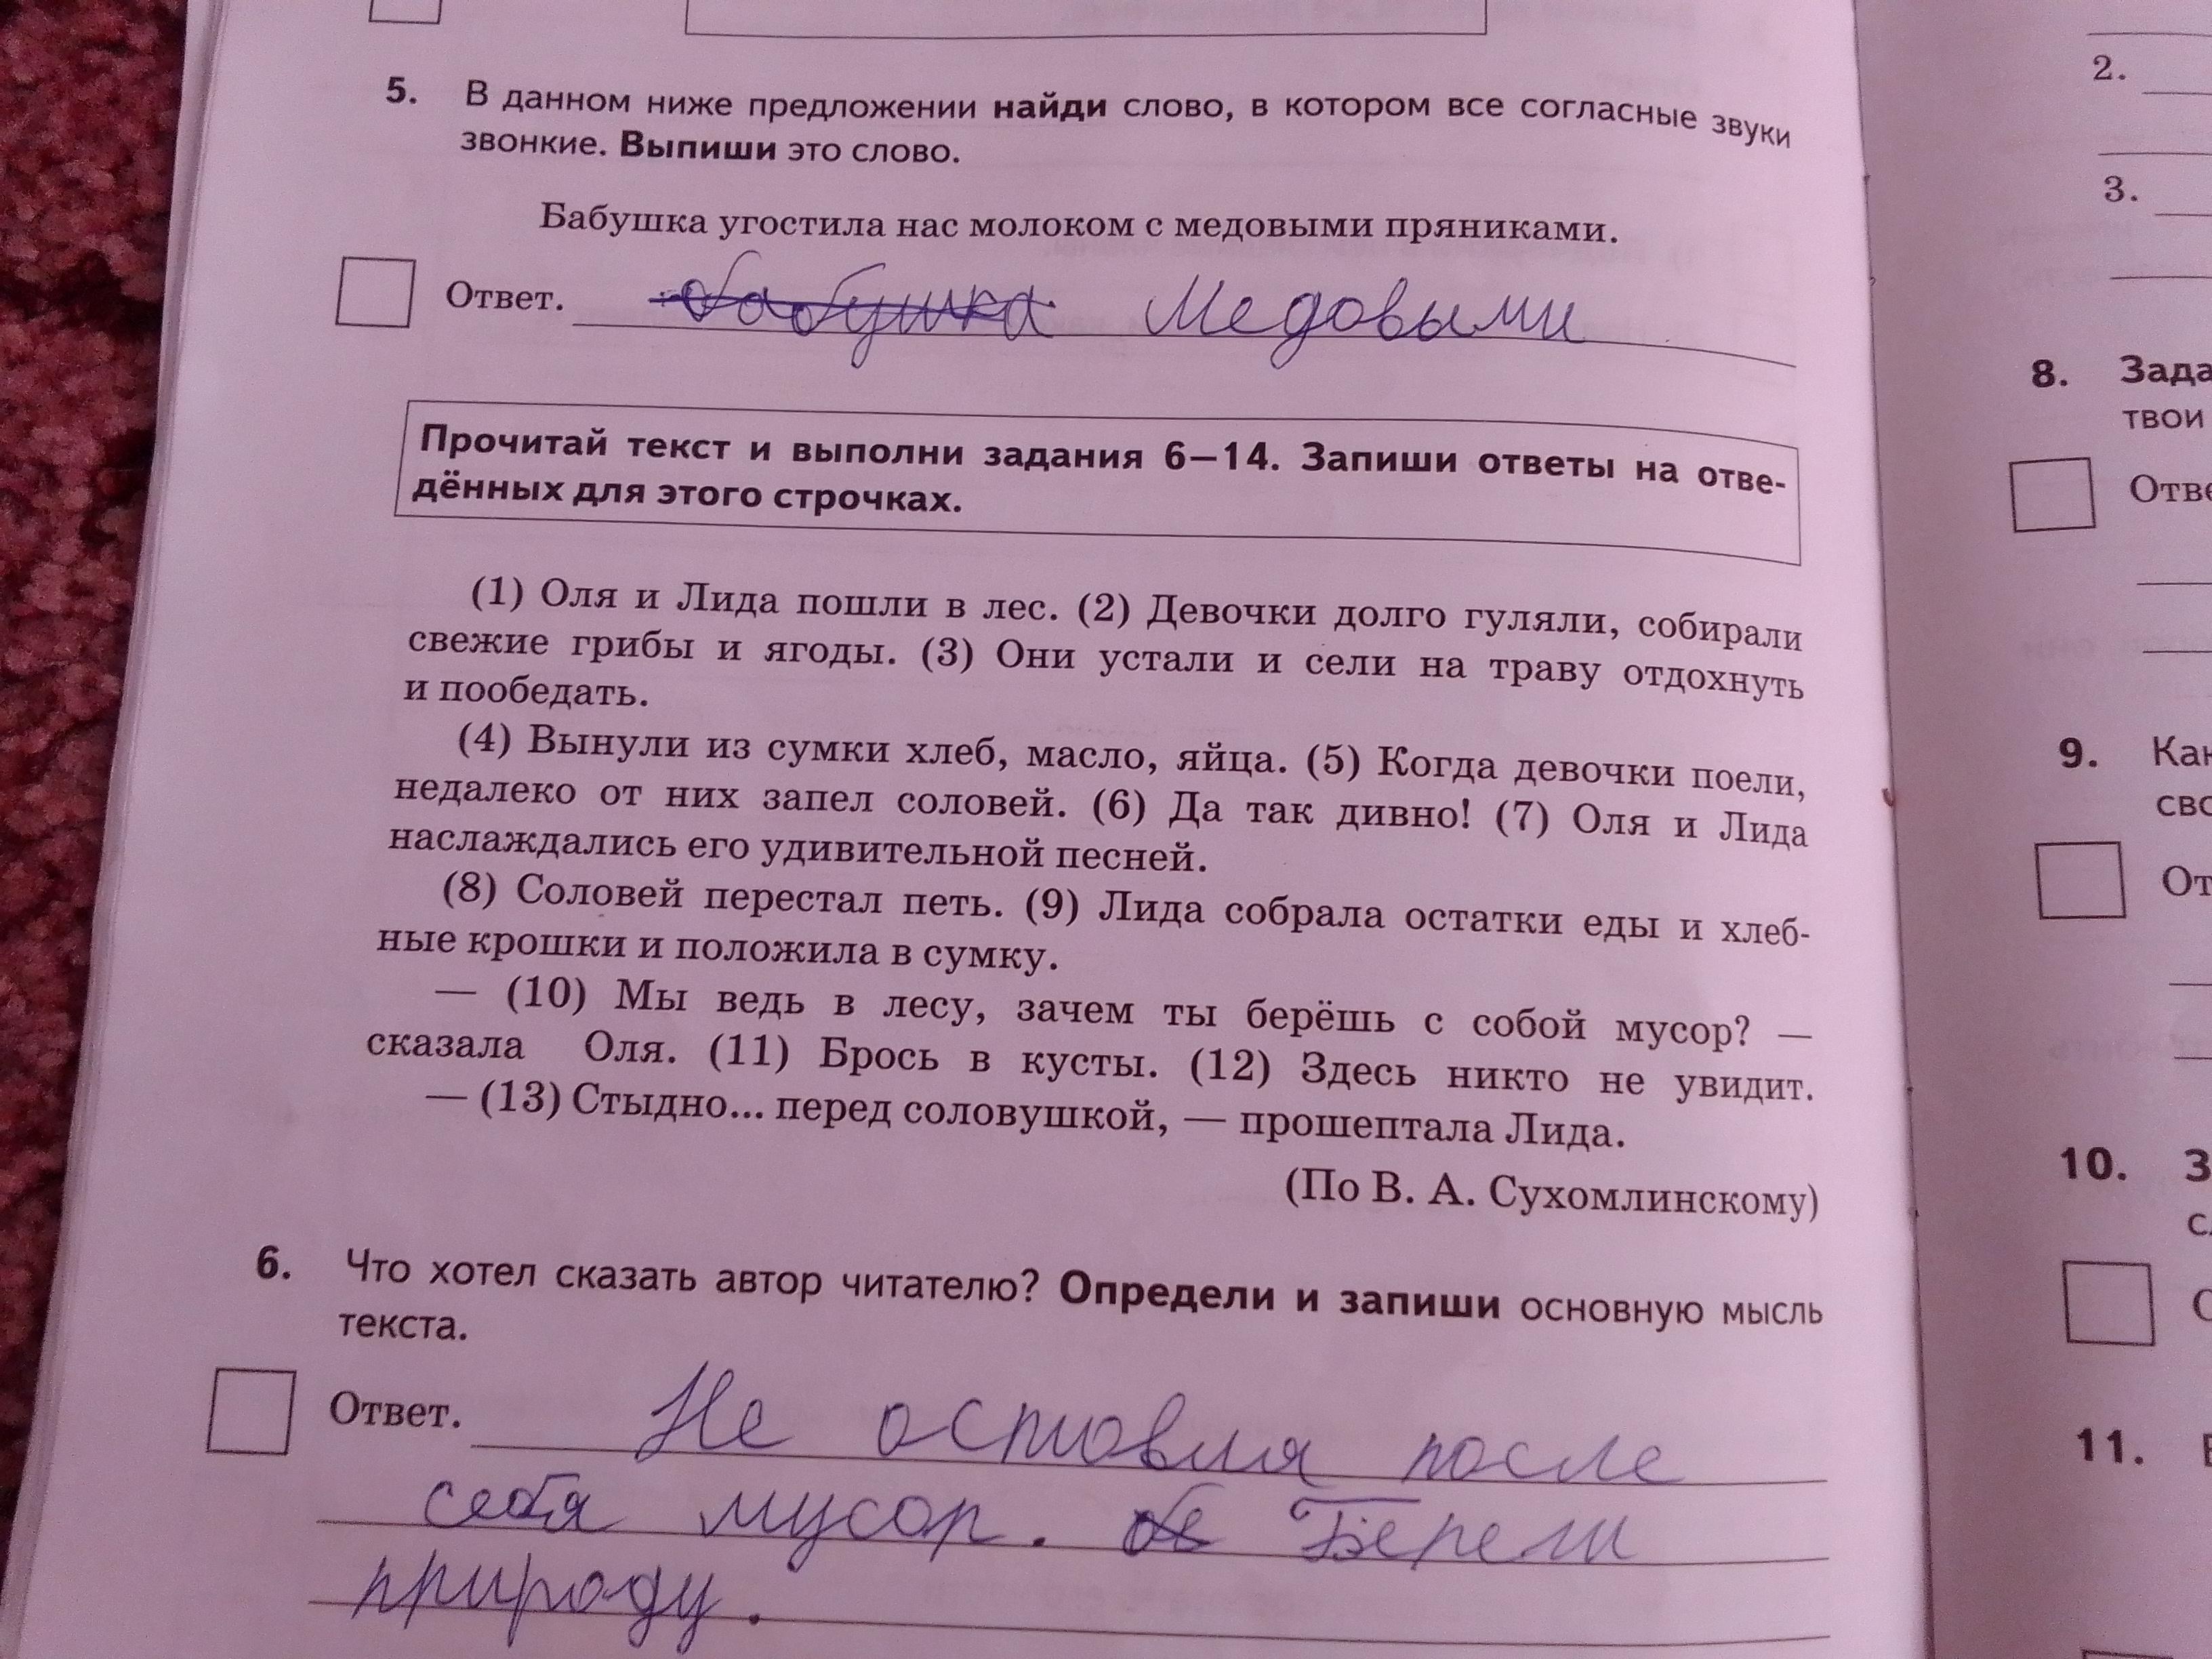 5. В данном ниже предложении найди слово, в котором все согласные звуки
звонкие. Выпиши это слово.
Бабушка угостила нас молоком с медовыми пряниками.
Ответ. бабушка Медовыми
Прочитай текст и выполни задания 6—14. Запиши ответы на отве-
дённых для этого строчках.
(1) Оля и Лида пошли в лес. (2) Девочки долго гуляли, собирали
свежие грибы и ягоды. (3) Они устали и сели на траву отдохнуть
и пообедать.
(4) Вынули из сумки хлеб, масло, яйца. (5) Когда девочки поели,
недалеко от них запел соловей. (6) Да так дивно! (7) Оля и Лида
наслаждались его удивительной песней.
(8) Соловей перестал петь. (9) Лида собрала остатки еды и хлеб-
ные крошки и положила в сумку.
— (10) Мы ведь в лесу, зачем ты берёшь с собой мусор? —
сказала Оля. (11) Брось в кусты. (12) Здесь никто не увидит.
— (13) Стыдно... перед соловушкой, — прошептала Лида.
(По В. А. Сухомлинскому)
6. Что хотел сказать автор читателю? Определи и запиши основную мысль
текста.
Ответ. Не оставля после
себя мусор. бе Береги
природу.
2.
3.
8. Зада
твои
Отве
9. Как
сво
От
10. З
11.